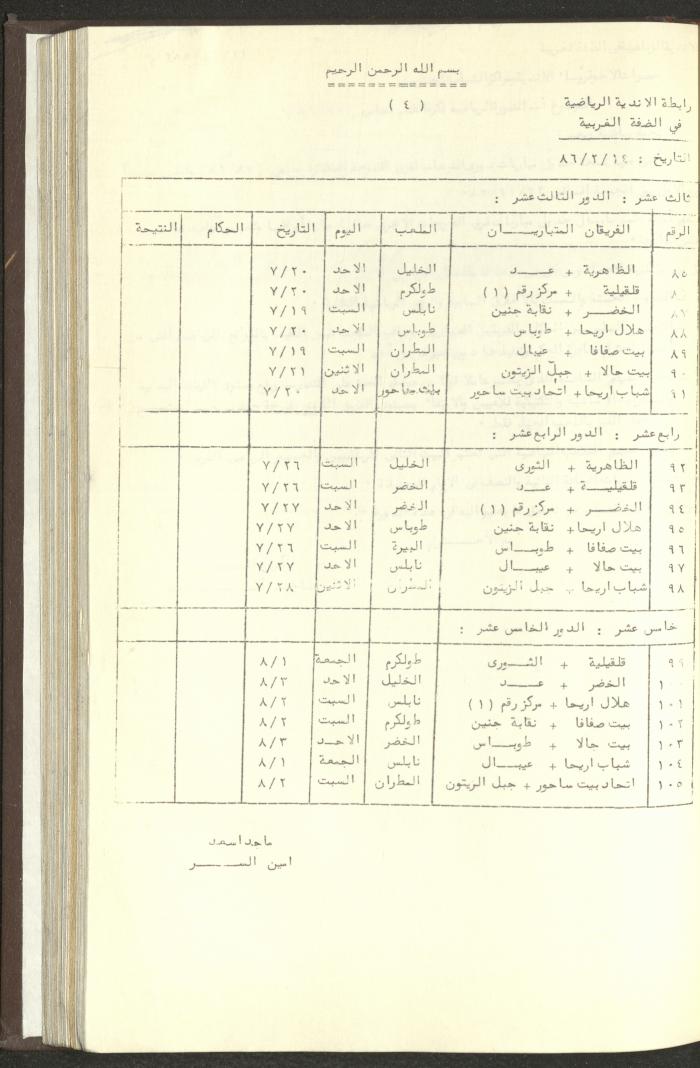 بسم الله الرحمن الرحيم
رابطة الاندية الرياضية
( ٤ )
في الضفة الغربية
التاريخ : ٨٦/٢/١٤
ثالث عشر : الدور الثالث عشر :
الرقم الفريقان المتباريــــان الملعب اليوم التاريخ الحكام النتيجة
٨٥ الظاهرية + عــــد الخليل الاحد ٧/٢٠
٨ قلقيلية + مركز رقم (١) طولكرم الاحد ٧/٢٠
٨٧ الخضــــر + نقابة جنين نابلس السبت ٧/١٩
٨٨ هلال اريحا + طوباس طوباس الاحد ٧/٢٠
٨٩ بيت صفافا + عيبال المطران السبت ٧/١٩
٩٠ بيت جالا + جبل الزيتون المطران الاثنين ٧/٢١
٩١ شباب اريحا + اتحاد بيت ساحور بيت ساحور الاحد ٧/٢٠
رابع عشر : الدور الرابع عشر :
٩٢ الظاهرية + الثورى الخليل السبت ٧/٢٦
٩٣ قلقيليـــة + عــــد الخضر السبت ٧/٢٦
٩٤ الخضــــر + مركز رقم (١) الخضر الاحد ٧/٢٧
٩٥ هلال اريحا + نقابة جنين طوباس الاحد ٧/٢٧
٩٦ بيت صفافا + طوبــــاس البيرة السبت ٧/٢٦
٩٧ بيت جالا + عيبــــال نابلس الاحد ٧/٢٧
٩٨ شباب اريحا + جبل الزيتون المطران الاثنين ٧/٢٨
خامس عشر : الدور الخامس عشر :
٩٩ قلقيلية + الثــــورى طولكرم الجمعة ٨/١
١٠٠ الخضر + عــــد الخليل الاحد ٨/٣
١٠١ هلال اريحا + مركز رقم (١) نابلس السبت ٨/٢
١٠٢ بيت صفافا + نقابة جنين طولكرم السبت ٨/٢
١٠٣ بيت جالا + طوبــــاس الخضر الاحــد ٨/٣
١٠٤ شباب اريحا + عيبــــال نابلس الجمعة ٨/١
١٠٥ اتحاد بيت ساحور + جبل الزيتون المطران السبت ٨/٢
ماجد اسعد
امين الســــــر